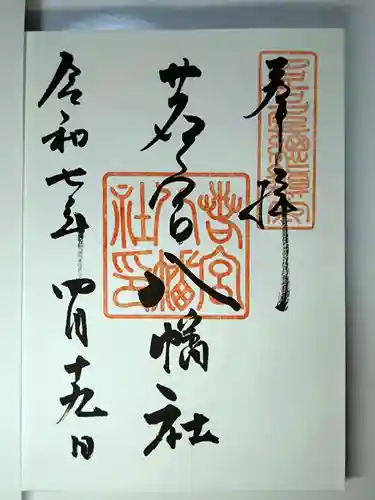 奉拝
若宮八幡社
令和七年四月十九日
若宮八幡社印